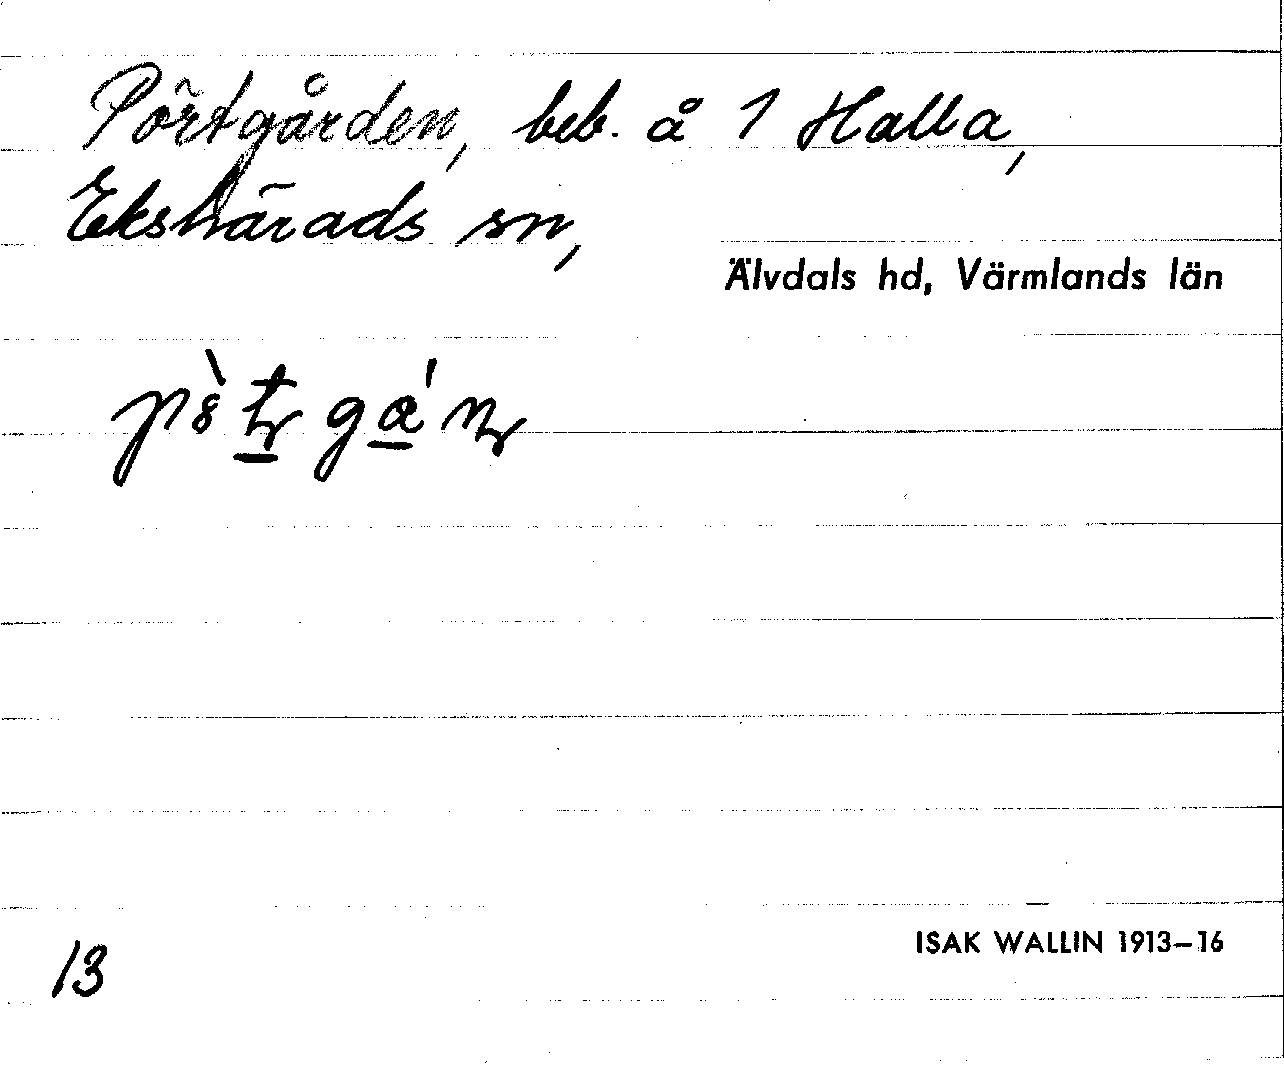 Pörtgården, beb. å 1 Halla,
Ekshärads sn,
Älvdals hd, Värmlands län
13
ISAK WALLIN 1913–16